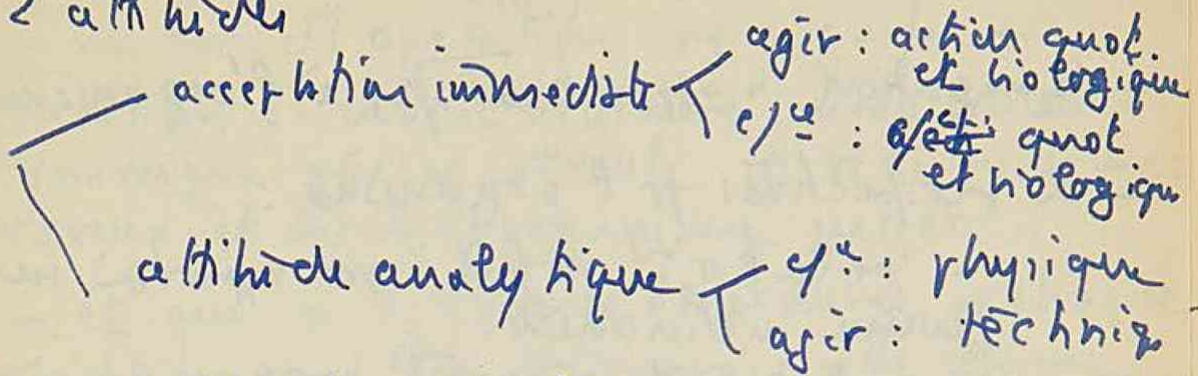 2 attitudes
acceptation immediate
agir : action quot.
et biologique
c/ce : quot
et biologiqu
attitude analytique
c/ce : physique
agir : techniq